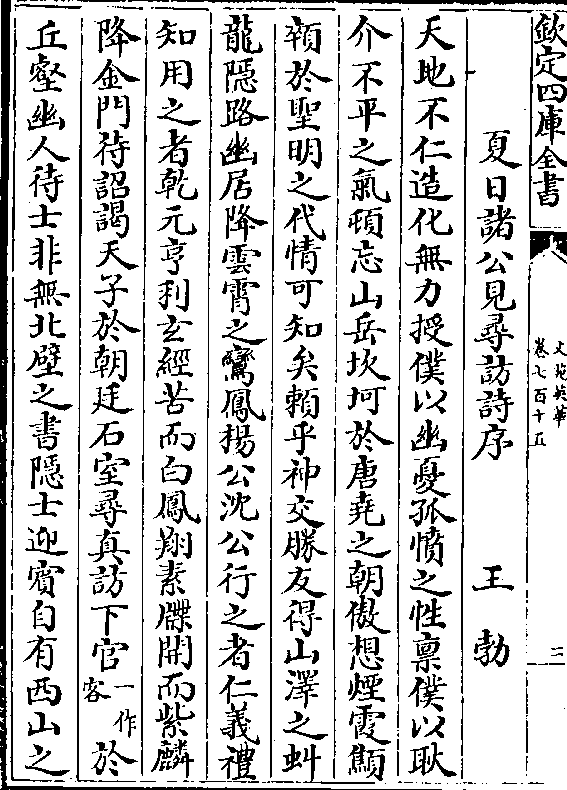 欽定四庫全書
文苑英華
卷七百十五
三
夏日諸公見尋訪詩序 王勃
天地不仁造化無力授僕以幽憂孤憤之性稟僕以耿
介不平之氣頓忘山岳坎坷於唐堯之朝傲想煙霞顦
顇於聖明之代情可知矣賴乎神交勝友得山澤之虯
龍隱路幽居降雲霄之鸞鳳揚公沈公行之者仁義禮
知用之者乾元亨利玄經苦而白鳳翔素牒開而紫麟
降金門待詔謁天子於朝廷石室尋真訪下官一作客於
丘壑幽人待士非無北壁之書隱士迎賓自有西山之